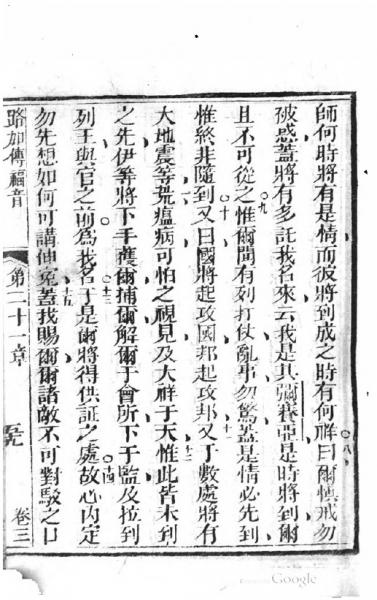 師何時將有是情而彼將到成之時有何祥曰爾慎戒勿
○八
被惑蓋將有多託我名來云我是其彌賽亞是時將到爾
○九
且不可從之惟爾聞有列打仗亂事勿驚蓋是情必先到
○十
惟終非隨到又曰國將起攻國邦起攻邦又于數處將有
十一
大地震等荒瘟病可怕之視見及大祥于天惟此皆未到
十二
之先伊等將下手護爾捕爾解爾于會所下于監及拉到
○十三
列王與官之前為我名于是爾將得供証之處故心內定
○十四
勿先想如何可講伸冤蓋我賜爾爾諸敵不可對駁之口
十五
路加傳福音
第二十一章
卷三
Google